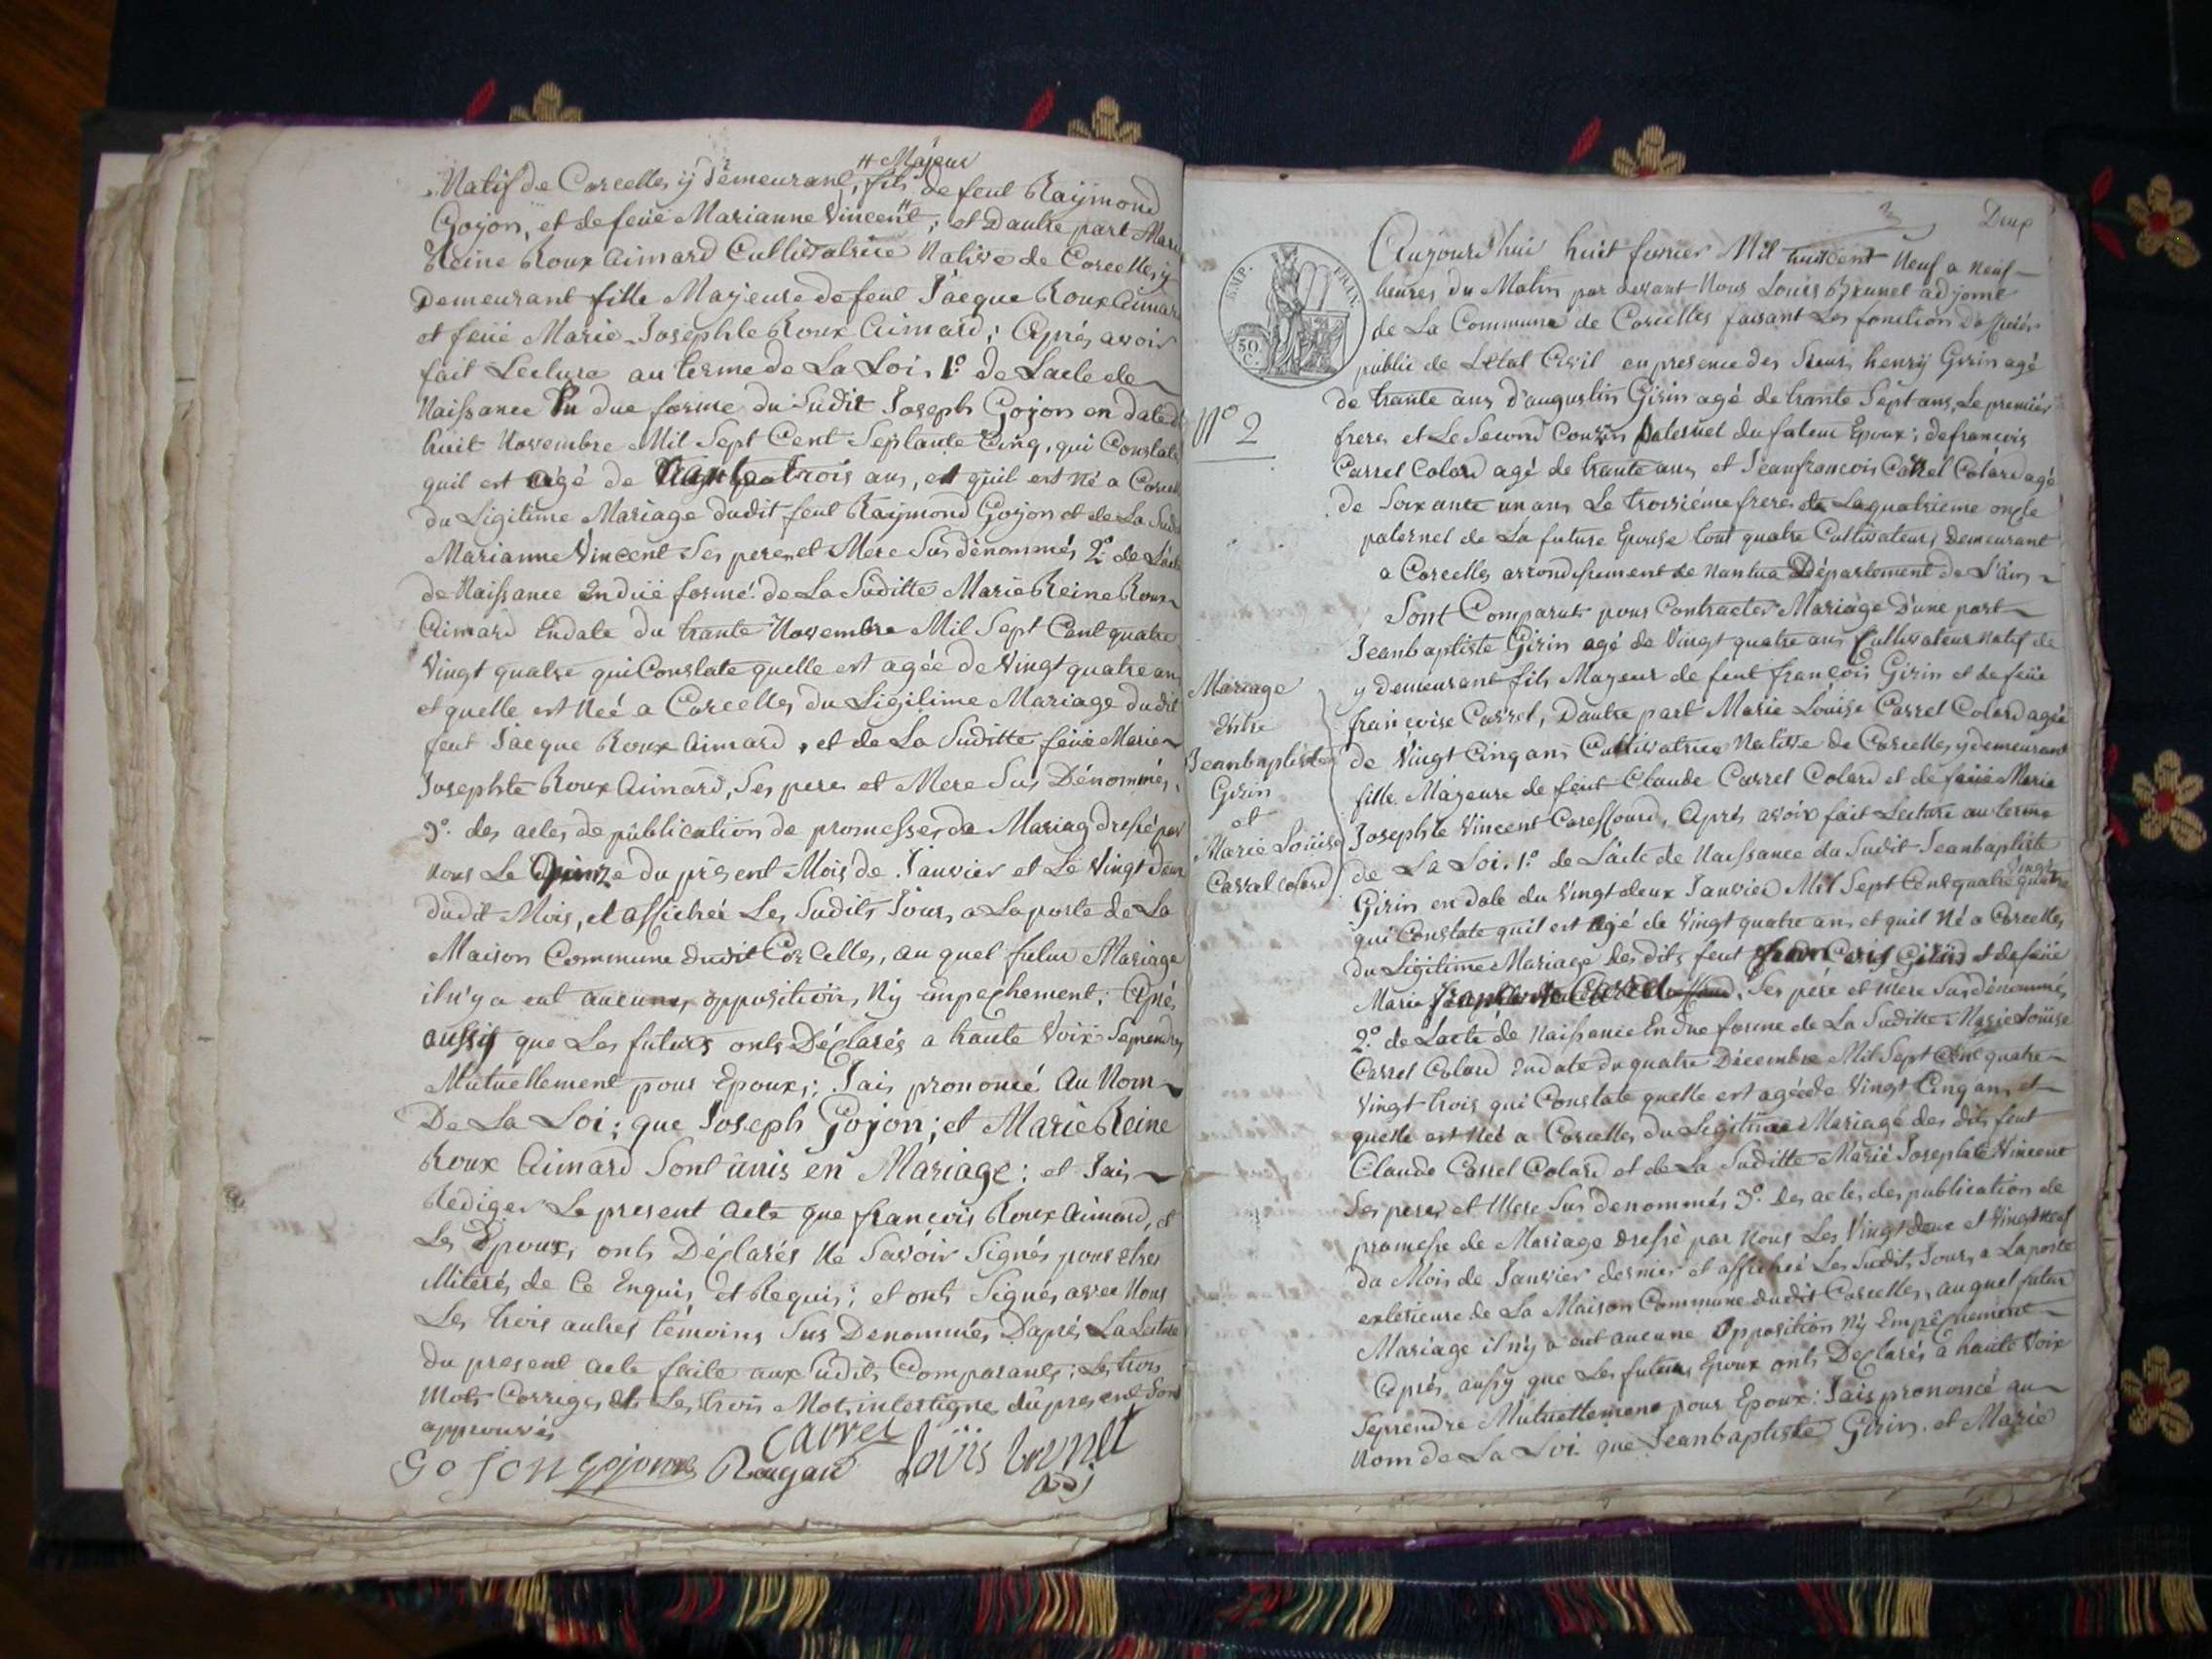 Majeur
Natif de Corcelles ÿ demeurant, fils de feut Raÿmond
Gojon, et de feüe Marianne Vincent; et D'autre part Marie
Reine Roux Aimard Cultivatrice Native de Corcelles, y
Demeurant fille Majeure de feut Jacque Roux Aimard
et feüe Marie-Josephte Roux Aimard; Aprés avoir
fait Lecture au terme de La Loi, 1º. de Lacte de
Naissance En due forme du Sudit Joseph Gojon en date d
huit Novembre Mil Sept Cent Septante Cinq, qui Constate
quil est agé de trois ans, et quil est Né a Corcelles
du Ligitime Mariage dudit feut Raÿmond Gojon et de La Sud
Marianne Vincent Ses peres et Mere Sus dénommés 2º. de L'acte
de Naissance En düe forme de La Suditte Marie Reine Roux
Aimard En date du trante Novembre Mil Sept Cent quatre
Vingt quatre qui Constate quelle est agée de Vingt quatre ans
et quelle est Neé a Corcelles du Ligitime Mariage du dit
feut Jacque Roux Aimard, et de La Suditte feüe Marie
Josephte Roux Aimard, Ses peres et Mere Sus Dénommés,
3º. des actes de publication de promesses de Mariag dressé par
nous Le Quinze du présent Mois de Janvier et Le Vingt deux
dudit Mois, et affichée Les Sudits Jours, a La porte de La
Maison Commune dudit Corcelles, au quel futur Mariage
il n'y a eut aucunes opposition, Ny empechement; Aprés
aussit que Les futurs onts Déclarés a haute Voix Seprendre
Mutuellement pour Epoux; Jais prononcé Au Nom
De La Loi; que Joseph Gojon; et Marie Reine
Roux Aimard Sont unis en Mariage: et Jais
Rédiger Le present Acte que francois Roux Aimard, et
Les Epoux, onts Déclarés Né Savoir Signés pour etres
Miterés de Ce Enquis et Requis; et onts Signés avec Nous
Les trois autres témoins Sus Denommés D'aprés La Lecture
du present acte faite aux Sudits Comparants: Les trois
Mots Corriges et Les trois Mots interlignes du present Sont
approuvés
Carrel
Gojon Gojon Loüis brunet
adj
Deux
Aujourd'hui huit fevrier Mil huitcent Neuf a neuf
heures du Matin par devant Nous Louis Brunet adjoint
de La Commune de Corcelles faisant Les fonction D'officier
public de Létat Civil en presence des Sieurs henrÿ Girin agé
de trante ans D'augustin Girin agé de trante Sept ans, Le premier
freres et Le Second Couzin paternel du futeur Epoux; de francois
Carrel Colard agé de trante ans et Jean francois Carrel Colard agé
de Soixante un ans Le troisiéme freres et Le quatrieme oncle
paternel de La future Epouse tout quatre Cultivateurs Demeurant
a Corcelles arrondissement de Nantua Département de L'ain
Sont Comparuts pour Contracter Mariage D'une part
Jeanbaptiste Girin agé de Vingt quatre ans Cultivateur natif de
y demeurant fils Majeur de feut francois Girin et de feüe
françoise Carrel, D'autre part Marie Louise Carrel Colard agée
de Vingt Cinq ans Cultivatrice Native de Corcelles y demeurant
fille Majeure de feut Claude Carrel Colard et de feüe Marie
Josephte Vincent, Aprés avoir fait Lecture au terme
de La Loi. 1º. de L'acte de Naissance du Sudit Jeanbaptiste
Vingt
Girin en date du Vingt deux Janvier Mil Sept Cent quatre quatre
qui Constate quil est agé de Vingt quatre ans et quil Né a Corcelles
du Ligitime Mariage des dits feut Girin et de feüe
Marie Ses pére et Mere Sus dénommés
2º. de Lacte de Naissance En due forme de La Suditte Marie Louise
Carrel Colard En date du quatre Décembre Mil Sept Cent quatre
Vingt trois qui Constate quelle est agée de Vingt Cinq ans, et
quelle est Neé a Corcelles du Legitime Mariage des dits feut
Claude Carrel Colard et de La Suditte Marie Josephte Vincent
Ses peres et Mere Sus denommés 3º. Les actes des publication de
promesse de Mariage dressé par Nous Les Vingt deux et Vingt neuf
du Mois de Janvier dernier et affichée Les Sudits Jours, a La porte
exterieure de La Maison Commune dudit Corcelles, au quel futur
Mariage il n'y a eut aucune Opposition Ny Empechement
Aprés aussy que Les futurs Epoux onts Declarés a haute Voix
Seprendre Mutuellement pour Epoux: Jais prononcé au
Nom de La Loi que Jeanbaptiste Girin. et Marie
EMP. FRAN.
50 C.
Nº 2
Mariage
Entre
Jeanbaptiste
Girin
et
Marie Louise
Carrel Colard